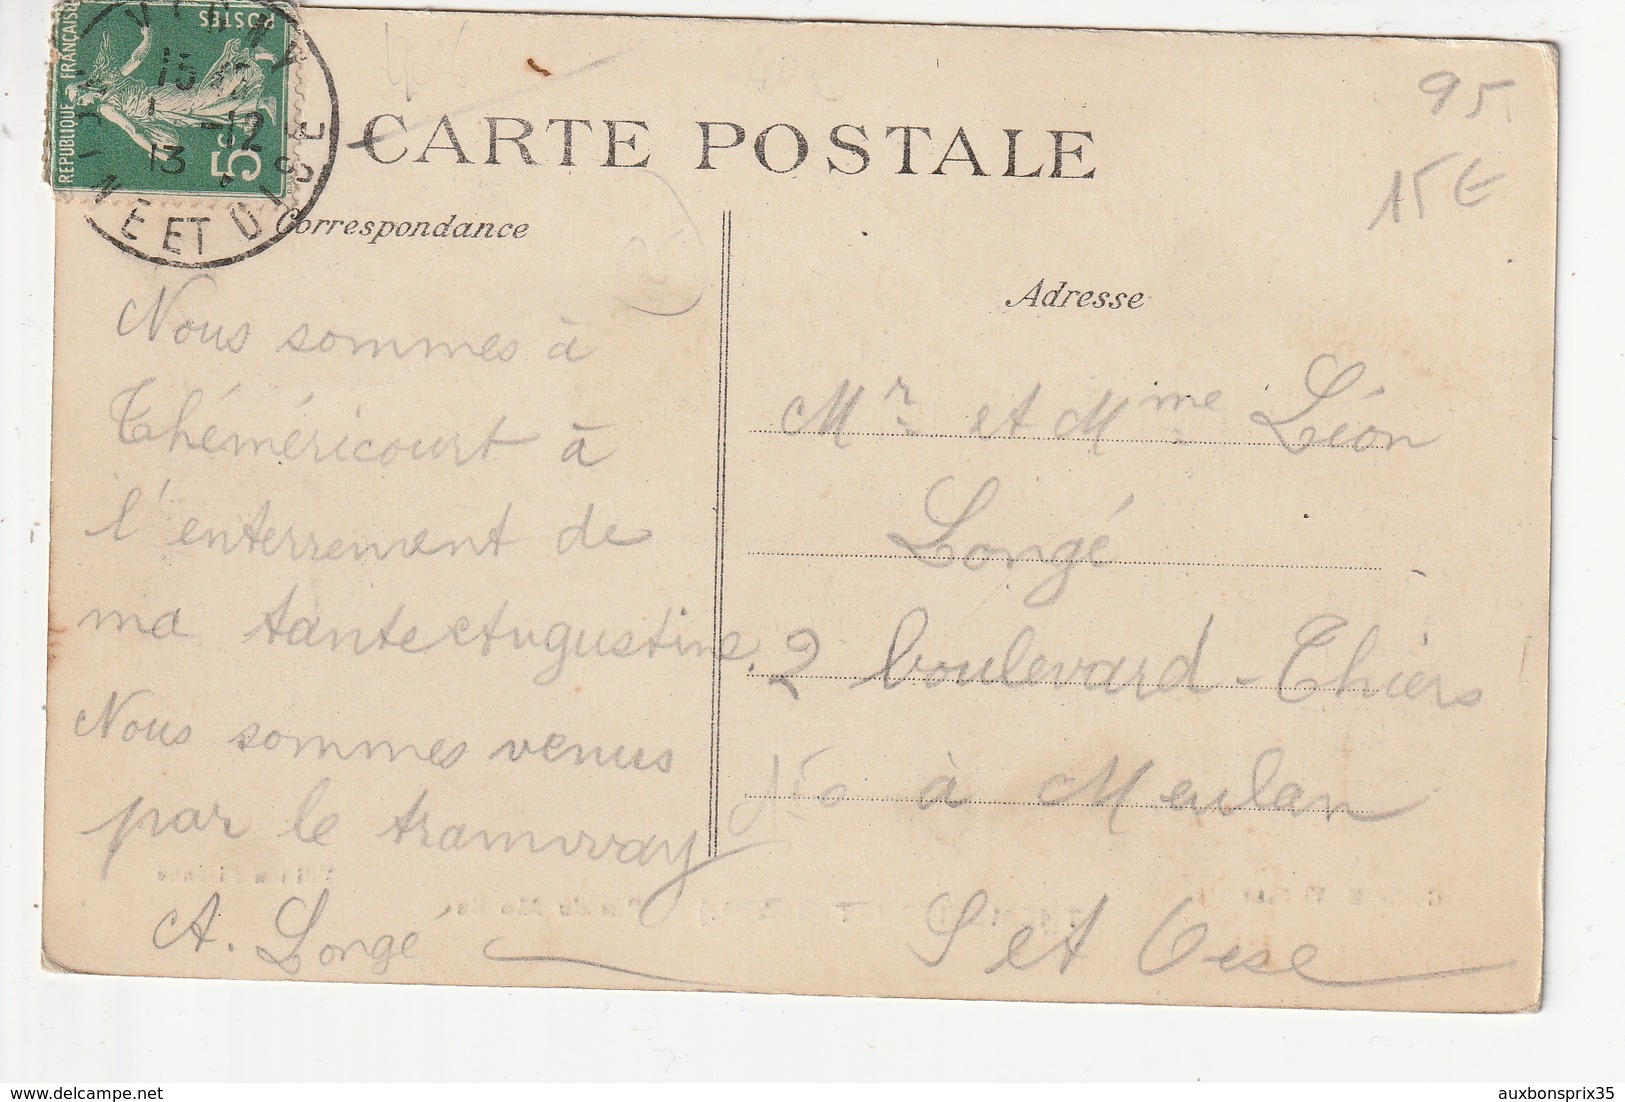 RÉPUBLIQUE FRANÇAISE
POSTES
5c
VIGNY
15
1 -12
13
SEINE ET OISE
CARTE POSTALE
95
15 €
Correspondance
Adresse
Nous sommes à
Théméricourt à
l'enterrement de
ma tante Augustine.
Nous sommes venus
par le tramway
A. Longé
Mr et Mme Léon
Longé
2 boulevard-Thiers
No à Meulan
S et Oise
auxbonsprix35